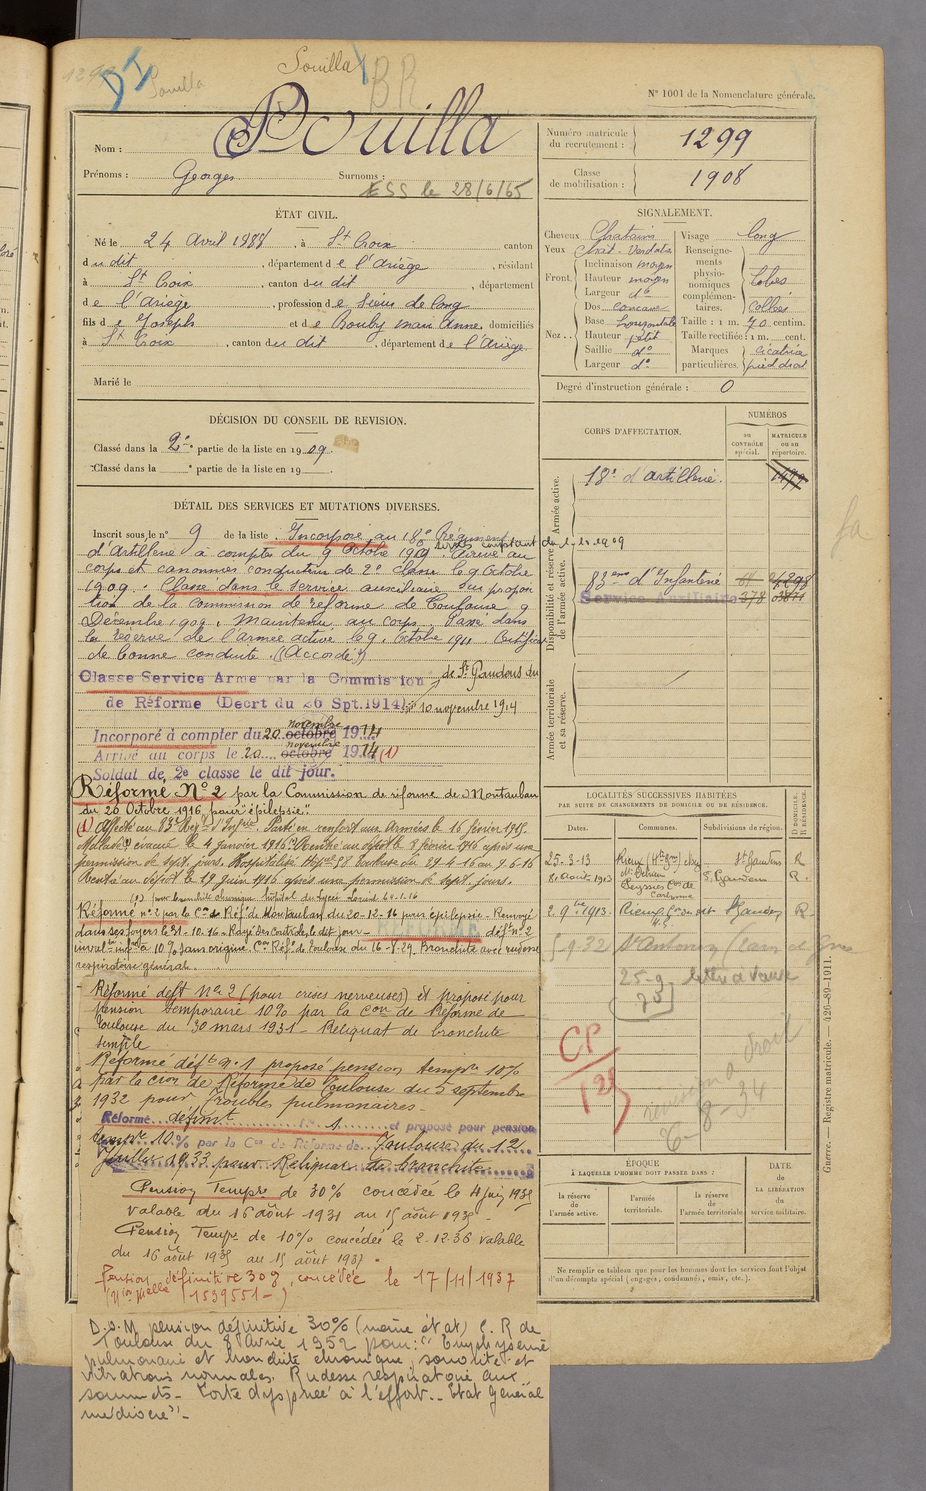 1299
Souilla
Souilla
BR
N° 1001 de la Nomenclature générale.
Nom : Pouilla
Prénoms : Georges Surnoms :
ESS le 28/6/65
Numéro matricule du recrutement : 1299
Classe de mobilisation : 1908
ÉTAT CIVIL.
Né le 24 Avril 1888, à St Croix canton
du dit, département de l'Ariège, résidant
à St Croix, canton du dit, département
de l'Ariège, profession de Scieur de long
fils de Joseph et de Rouby Marie Anne domiciliés
à St Croix, canton du dit, département de l'Ariège
Marié le
SIGNALEMENT.
Cheveux Chatains
Yeux Chat. Verdatre
Front. Inclinaison moyen
Hauteur moyen
Largeur do
Nez .. Dos concave
Base horizontale
Hauteur petit
Saillie do
Largeur do
Visage long
Renseignements physionomiques complémentaires. Lobes collés
Taille : 1 m. 70 centim.
Taille rectifiée : 1 m. cent.
Marques particulières. cicatrice pied droit
Degré d'instruction générale : 0
DÉCISION DU CONSEIL DE REVISION.
Classé dans la 2e partie de la liste en 1909.
Classé dans la e partie de la liste en 19
DÉTAIL DES SERVICES ET MUTATIONS DIVERSES.
Inscrit sous le n° 9 de la liste. Incorporé au 18e Régiment
d'Artillerie à compter du 9 Octobre 1909. Arrivé au
corps et canonnier conducteur de 2e classe le 9 Octobre
1909. Classé dans le service auxiliaire sur propo-
tion de la Commission de réforme de Toulouse 9
Décembre 1909. Maintenu au corps. Passé dans
la réserve de l'armée active le 9 Octobre 1911. Certificat
de bonne conduite "(Accordé")
Classe Service Armé par la Commission de St Gaudens du
de Réforme (Decrt du 26 Spt. 1914) 10 novembre 1914
Incorporé à compter du 20 octobre novembre 1914
Arrivé au corps le 20 octobre novembre 1914 (1)
Soldat de 2e classe le dit jour.
Réformé No 2 par la Commission de réforme de Montauban
du 20 Octobre 1916 pour "épilepsie".
(1) Affecté au 83e Régt d'Infie. Parti en renfort aux Armées le 16 février 1915.
Malade évacué le 4 janvier 1916. Rentré au dépôt le 8 février 1916 après une
permission de sept jours. Hospitalisé Toulouse du 29-4-16 au 9-6-16
Rentré au dépôt le 19 juin 1916 après une permission de sept jours.
Réformé n° 2 par la Con de Réfe de Montauban du 20-12-16 pour épilepsie - Renvoyé
dans ses foyers le 31-10-16 - Rayé des Contrôles le dit jour -
RÉFORMÉ défve n° 2
invté infre à 10% sans origine, Con Réfe de Toulouse du 16-8-29 Bronchite avec rudesse
respiratoire générale.
Réformé deft No 2 (pour crises nerveuses) et proposé pour
pension temporaire 10% par la Con de Réforme de
Toulouse du 30 mars 1931 - Reliquat de bronchite
simple
Réformé déft n° 1 proposé pension tempre 10%
par la Con de Réforme de Toulouse du 5 septembre
1932 pour Troubles pulmonaires -
Réformé défint n° 1 et proposé pour pension
tempre 10 % par la Con de Réforme de Toulouse du 12
Juillet 1933 pour Reliquat de bronchite
Pension Tempre de 30% concédée le 4 juin 1935
valable du 16 août 1931 au 15 août 1935 -
Pension Tempe de 10% concédée le 2-12-36 valable
du 16 août 1935 au 15 août 1937.
Pension définitive 30%, concédée le 17/11/1937
(1539551-)
D.s.M pension définitive 30% (même état) C. R de
Toulouse du 8 Avril 1952 pour: "Emphysème
pulmonaire et bronchite chronique, sonorité et
vibrations normales. Rudesse respiratoire aux
sommets - Forte dyspnée à l'effort.- Etat Général
médiocre" -
CORPS D'AFFECTATION.
NUMÉROS
AU CONTRÔLE spécial.
MATRICULE OU AU répertoire.
Armée active.
18e d'artillerie.
Disponibilité et réserve de l'armée active.
83eme d'Infanterie
Service Auxiliaire 378
Armée territoriale et sa réserve.
LOCALITÉS SUCCESSIVES HABITÉES
PAR SUITE DE CHANGEMENTS DE DOMICILE OU DE RÉSIDENCE.
Dates. Communes. Subdivisions de région. D DOMICILE. R RÉSIDENCE.
25-3-13 Rieux (Hte Gne) St Gaudens R
8 Août 1913 S. Gaudens R.
2 9bre 1913. Rieux St Gaudens R-
25-9
CP
6-8-34
ÉPOQUE
À LAQUELLE L'HOMME DOIT PASSER DANS :
la réserve de l'armée active.
l'armée territoriale.
la réserve de l'armée territoriale.
DATE DE LA LIBÉRATION du service militaire.
Ne remplir ce tableau que pour les hommes dont les services font l'objet
d'un décompte spécial (engagés, condamnés, omis, etc.).
Guerre. — Registre matricule. — 426-89-1911.